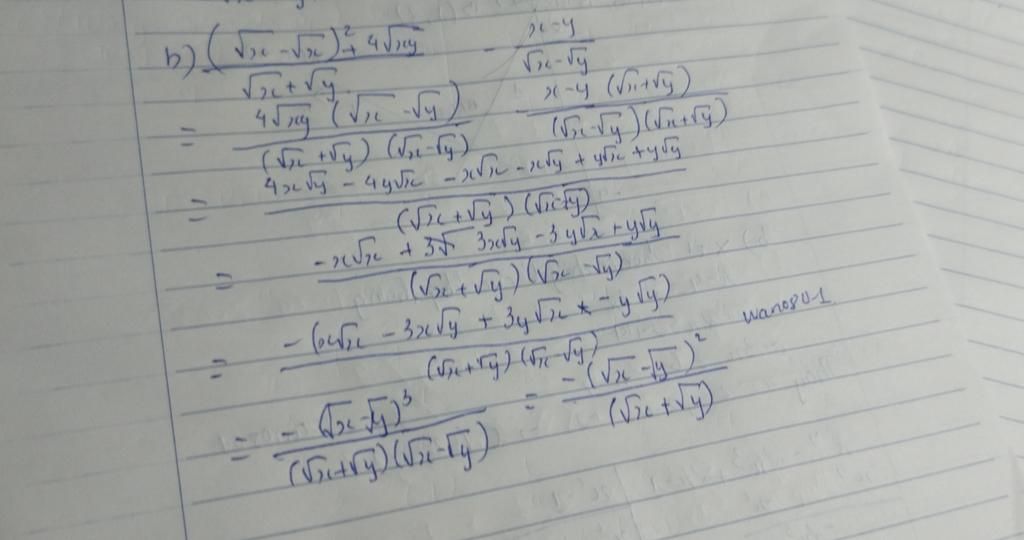 b) (√x - √x)² + 4√xy / √x + √y - x - y / √x - √y
= 4√xy (√x - √y) / (√x + √y) (√x - √y) - x - y (√x + √y) / (√x - √y) (√x + √y)
= 4x√y - 4y√x - x√x - x√y + y√x + y√y / (√x + √y) (√x - √y)
= -x√x + 3√ 3x√y - 3y√x + y√y / (√x + √y) (√x - √y)
= - (x√x - 3x√y + 3y√x - y√y) / (√x + √y) (√x - √y)
wano801
= - (√x - √y)³ / (√x + √y) (√x - √y) = - (√x - √y)² / (√x + √y)